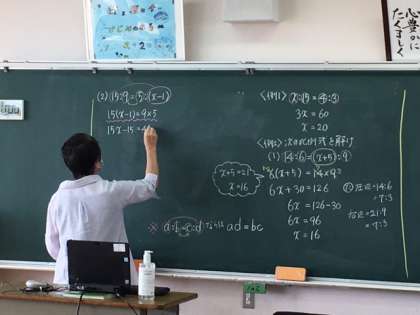 (2) 15:9=5:(x-1)
15(x-1)=9×5
15x-15=4
※ a:b=c:d ならば ad=bc
<例1> x:15=4:3
3x=60
x=20
<例2> 次の比例式を解け
(1) 14:6=(x+5):9
6(x+5)=14×9
x+5=21
x=16
6x+30=126
6x=126-30
6x=96
x=16
左辺=14:6
=7:3
右辺=21:9
=7:3
心豊かに
たくましく